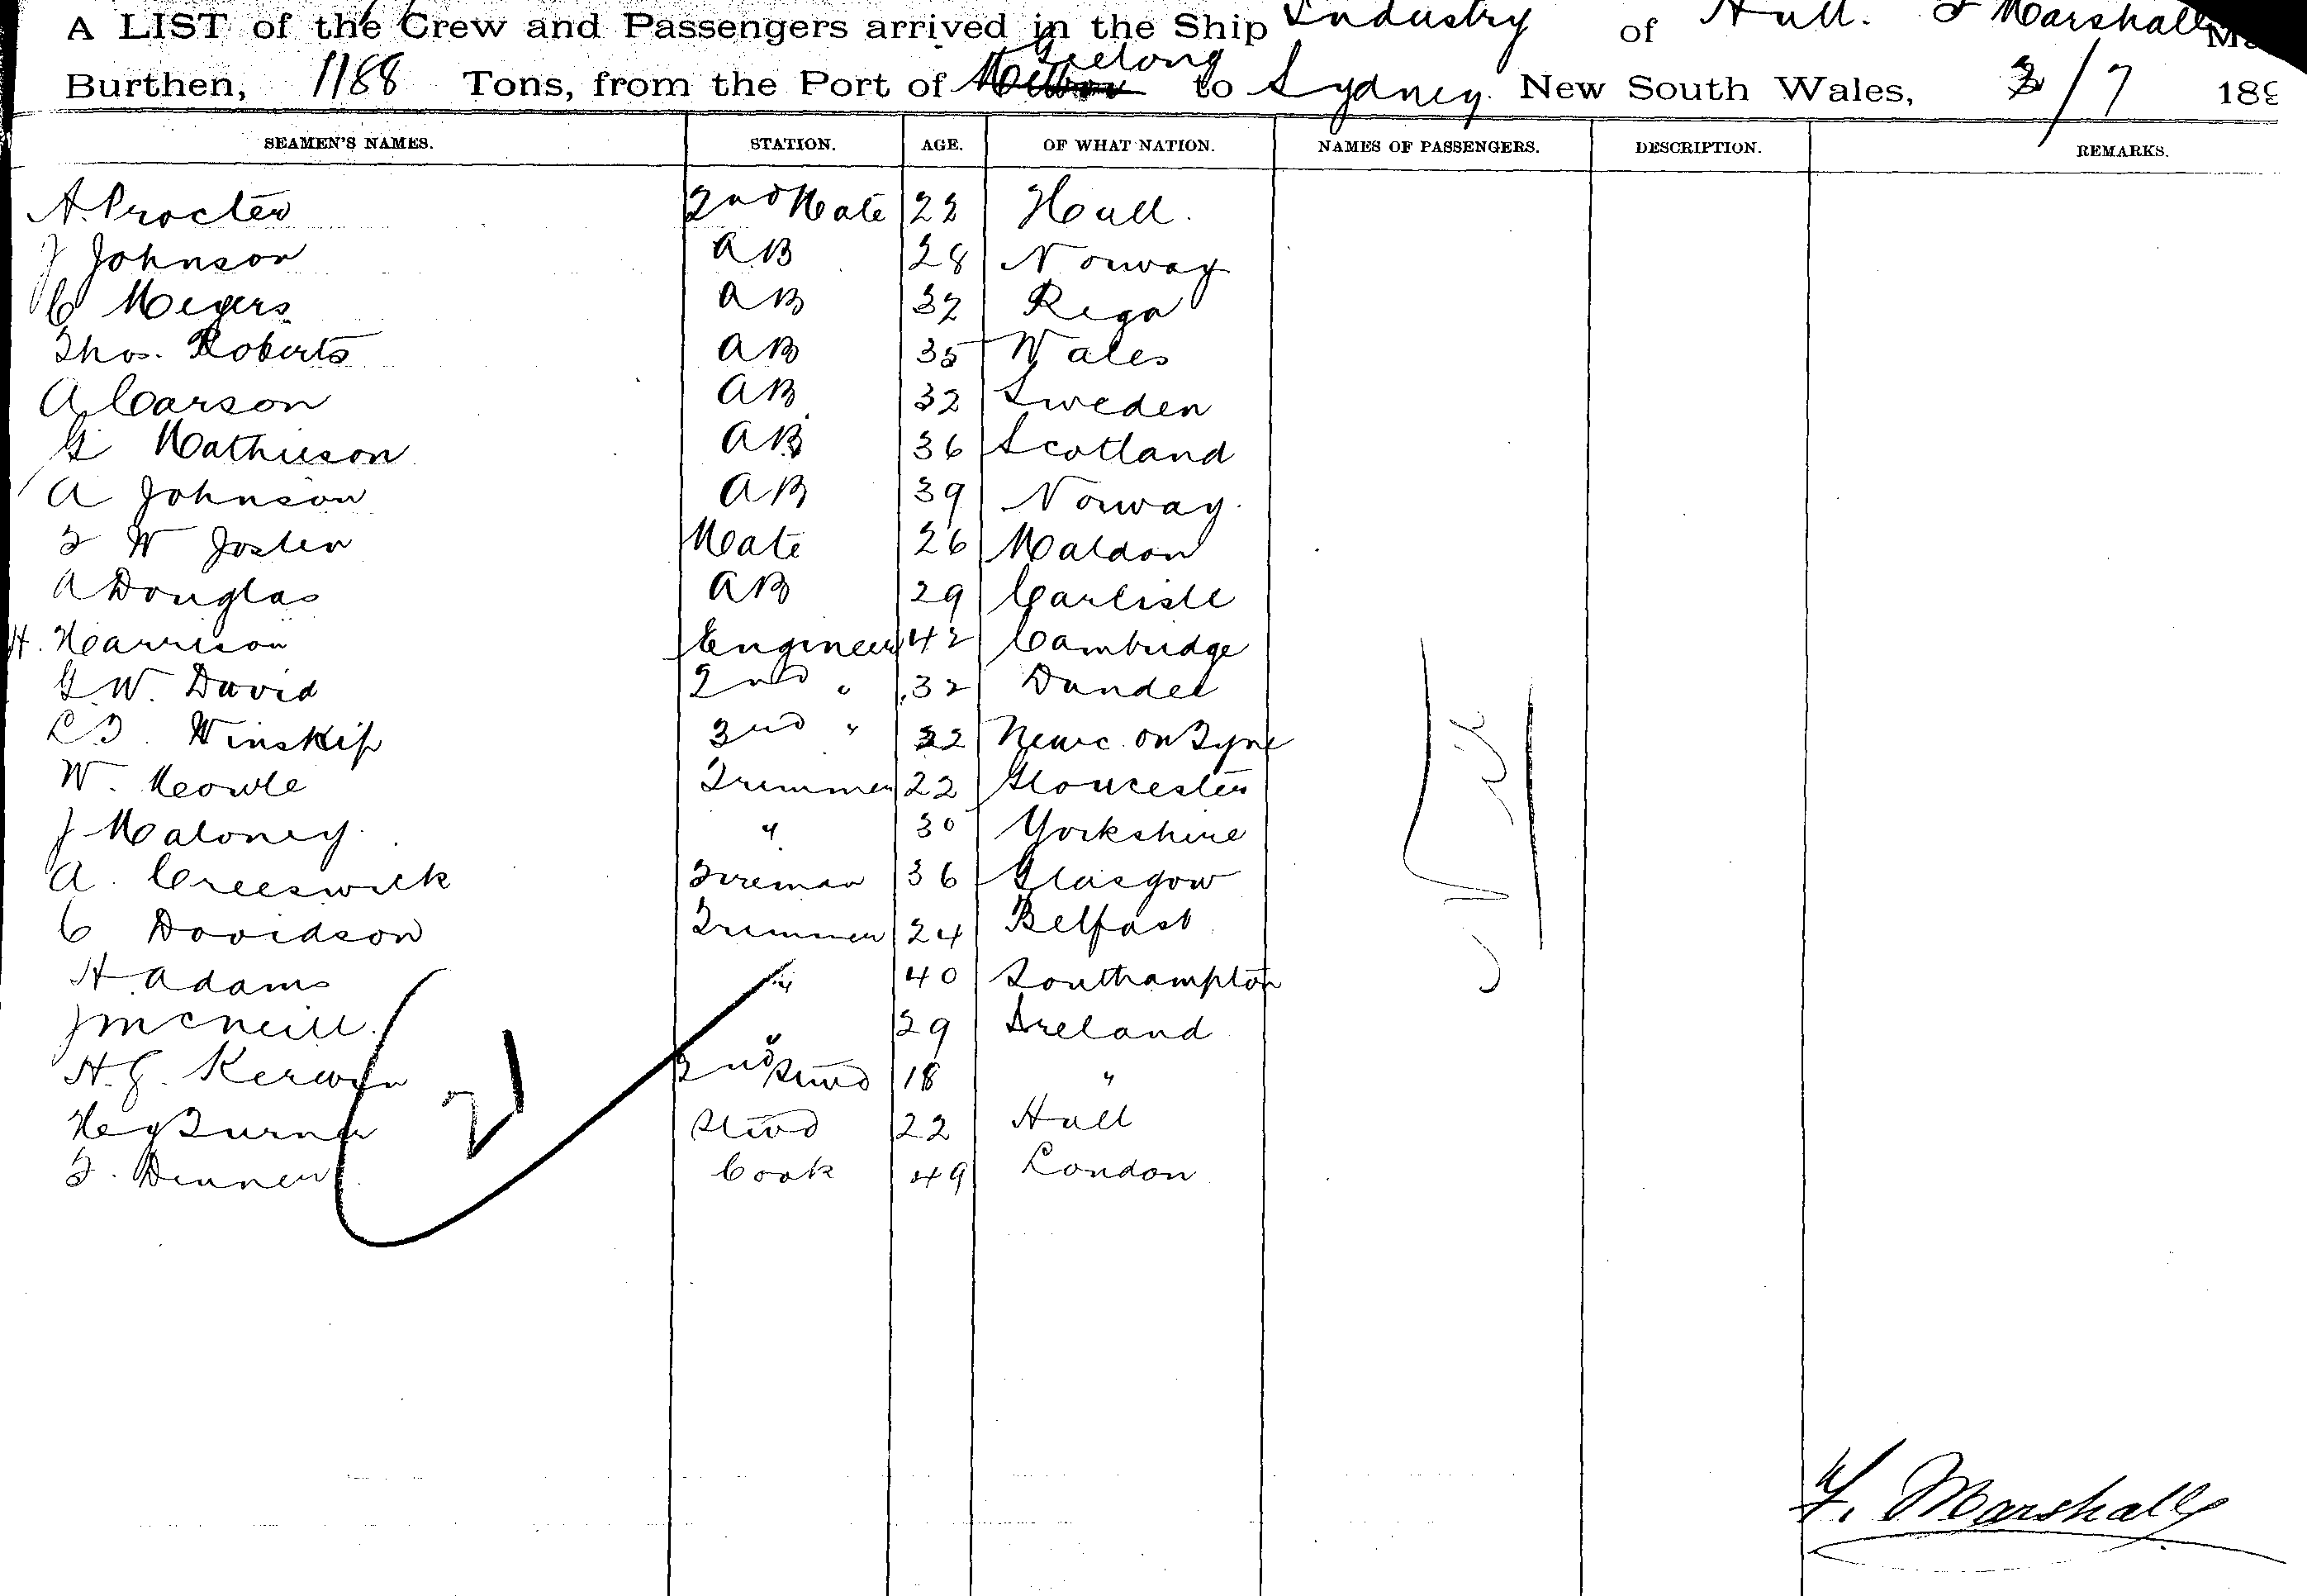 A LIST of the Crew and Passengers arrived in the Ship Industry of Hull. F Marshall
Burthen, 1188 Tons, from the Port of Geelong to Sydney. New South Wales, 3/7 189
SEAMEN'S NAMES. STATION. AGE. OF WHAT NATION. NAMES OF PASSENGERS. DESCRIPTION. REMARKS.
A. Procter 2nd Mate 22 Hull.
J Johnson AB 28 Norway
C Meyers AB 32 Rega
Thos. Roberts AB 35 Wales
A Carson AB 32 Sweden
G Mathieson AB 36 Scotland
A Johnson AB 39 Norway.
F W Joslen Mate 26 Maldon
A Douglas AB 29 Carlisle
H. Harrison Engineer 42 Cambridge
G.W. David 2nd " 32 Dundee
L T. Winskip 3rd " 32 Newc. on Tyne
W. Trimmer 22 Gloucester
J Maloney. " 30 Yorkshire
A. Creeswick Fireman 36 Glasgow
C Davidson Trimmer 24 Belfast
H Adams " 40 Southampton
J McNeill. " 29 Ireland
H. G. Kerwin 2nd Stwd 18 "
Hey Turner Stwd 22 Hull
F. Denner Cook 49 London
F. Marshall